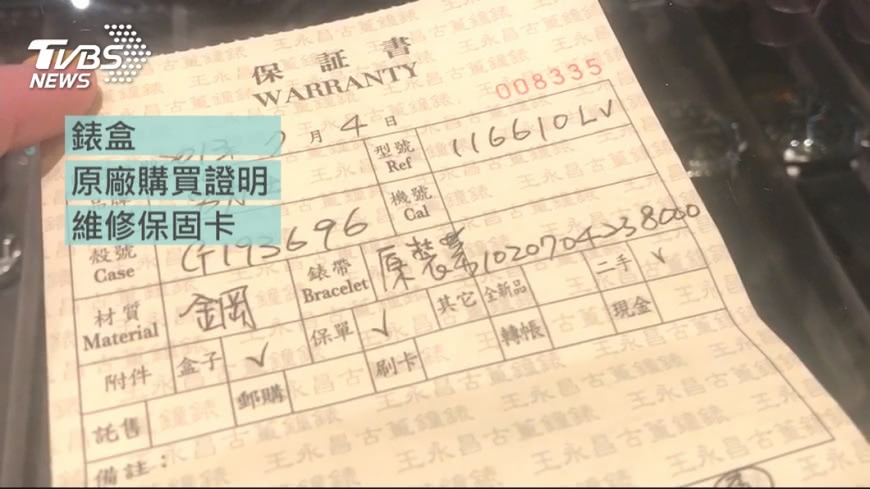 TVBS
NEWS
保証書
WARRANTY
008335
月 4 日
型號
Ref
116610LV
錶盒
原廠購買證明
維修保固卡
機號
Cal
殼號
Case
G193696
錶帶
Bracelet
原裝
1020704238000
材質
Material
鋼
附件
盒子 ✓
保單 ✓
其它
全新品
二手 ✓
託售
郵購
刷卡
轉帳
現金
備註：
王永昌古董鐘錶